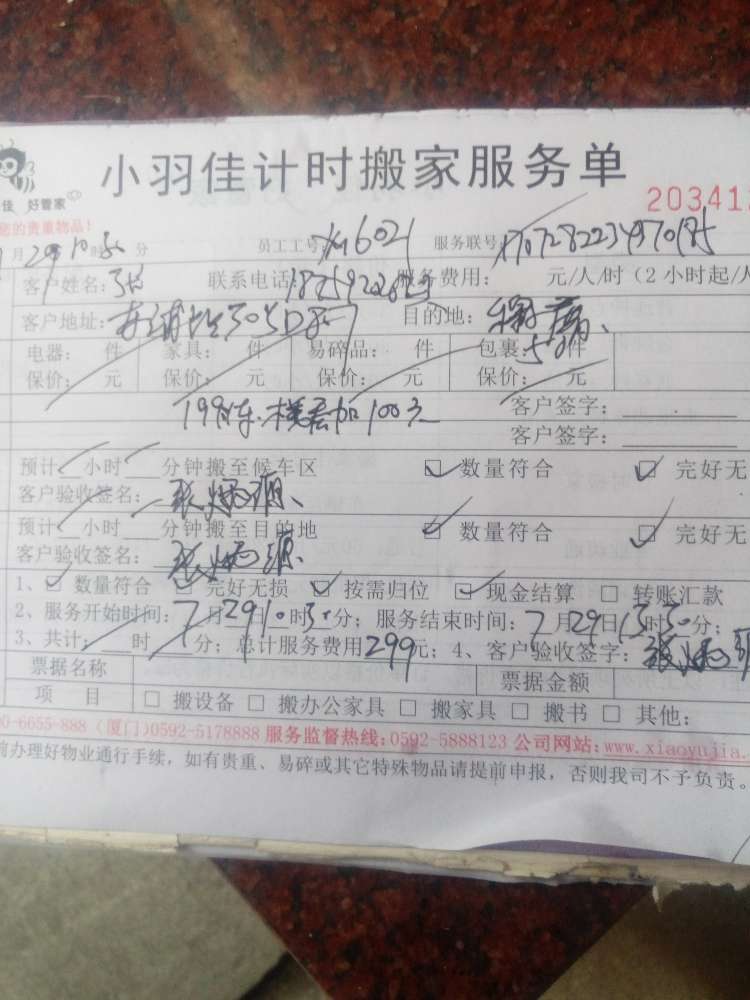 小羽佳计时搬家服务单
佳 好管家
203412
您的贵重物品!
月29 10时30分 员工工号: 601 服务联号:
客户姓名: 联系电话: 服务费用: 元/人/时(2小时起/人
客户地址: 目的地:
电器: 件 家具: 件 易碎品: 件 包裹: 件
保价: 元 保价: 元 保价: 元 保价: 元
199/车.楼层加100元 客户签字:
客户签字:
预计 小时 分钟搬至候车区 ☑ 数量符合 ☑ 完好无
客户验收签名: 张
预计 小时 分钟搬至目的地 ☑ 数量符合 ☑ 完好无
客户验收签名: 张
1、☑ 数量符合 ☑ 完好无损 ☑ 按需归位 ☑ 现金结算 □ 转账汇款
2、服务开始时间: 7月29 10时30分; 服务结束时间: 7月29日13时30分;
3、共计: 时 分; 总计服务费用299元; 4、客户验收签字: 张
票据名称 票据金额
项 目 □ 搬设备 □ 搬办公家具 □ 搬家具 □ 搬书 □ 其他:
00-6655-888 (厦门)0592-5178888 服务监督热线:0592-5888123 公司网站:www.xiaoyujia.
前办理好物业通行手续，如有贵重、易碎或其它特殊物品请提前申报，否则我司不予负责。